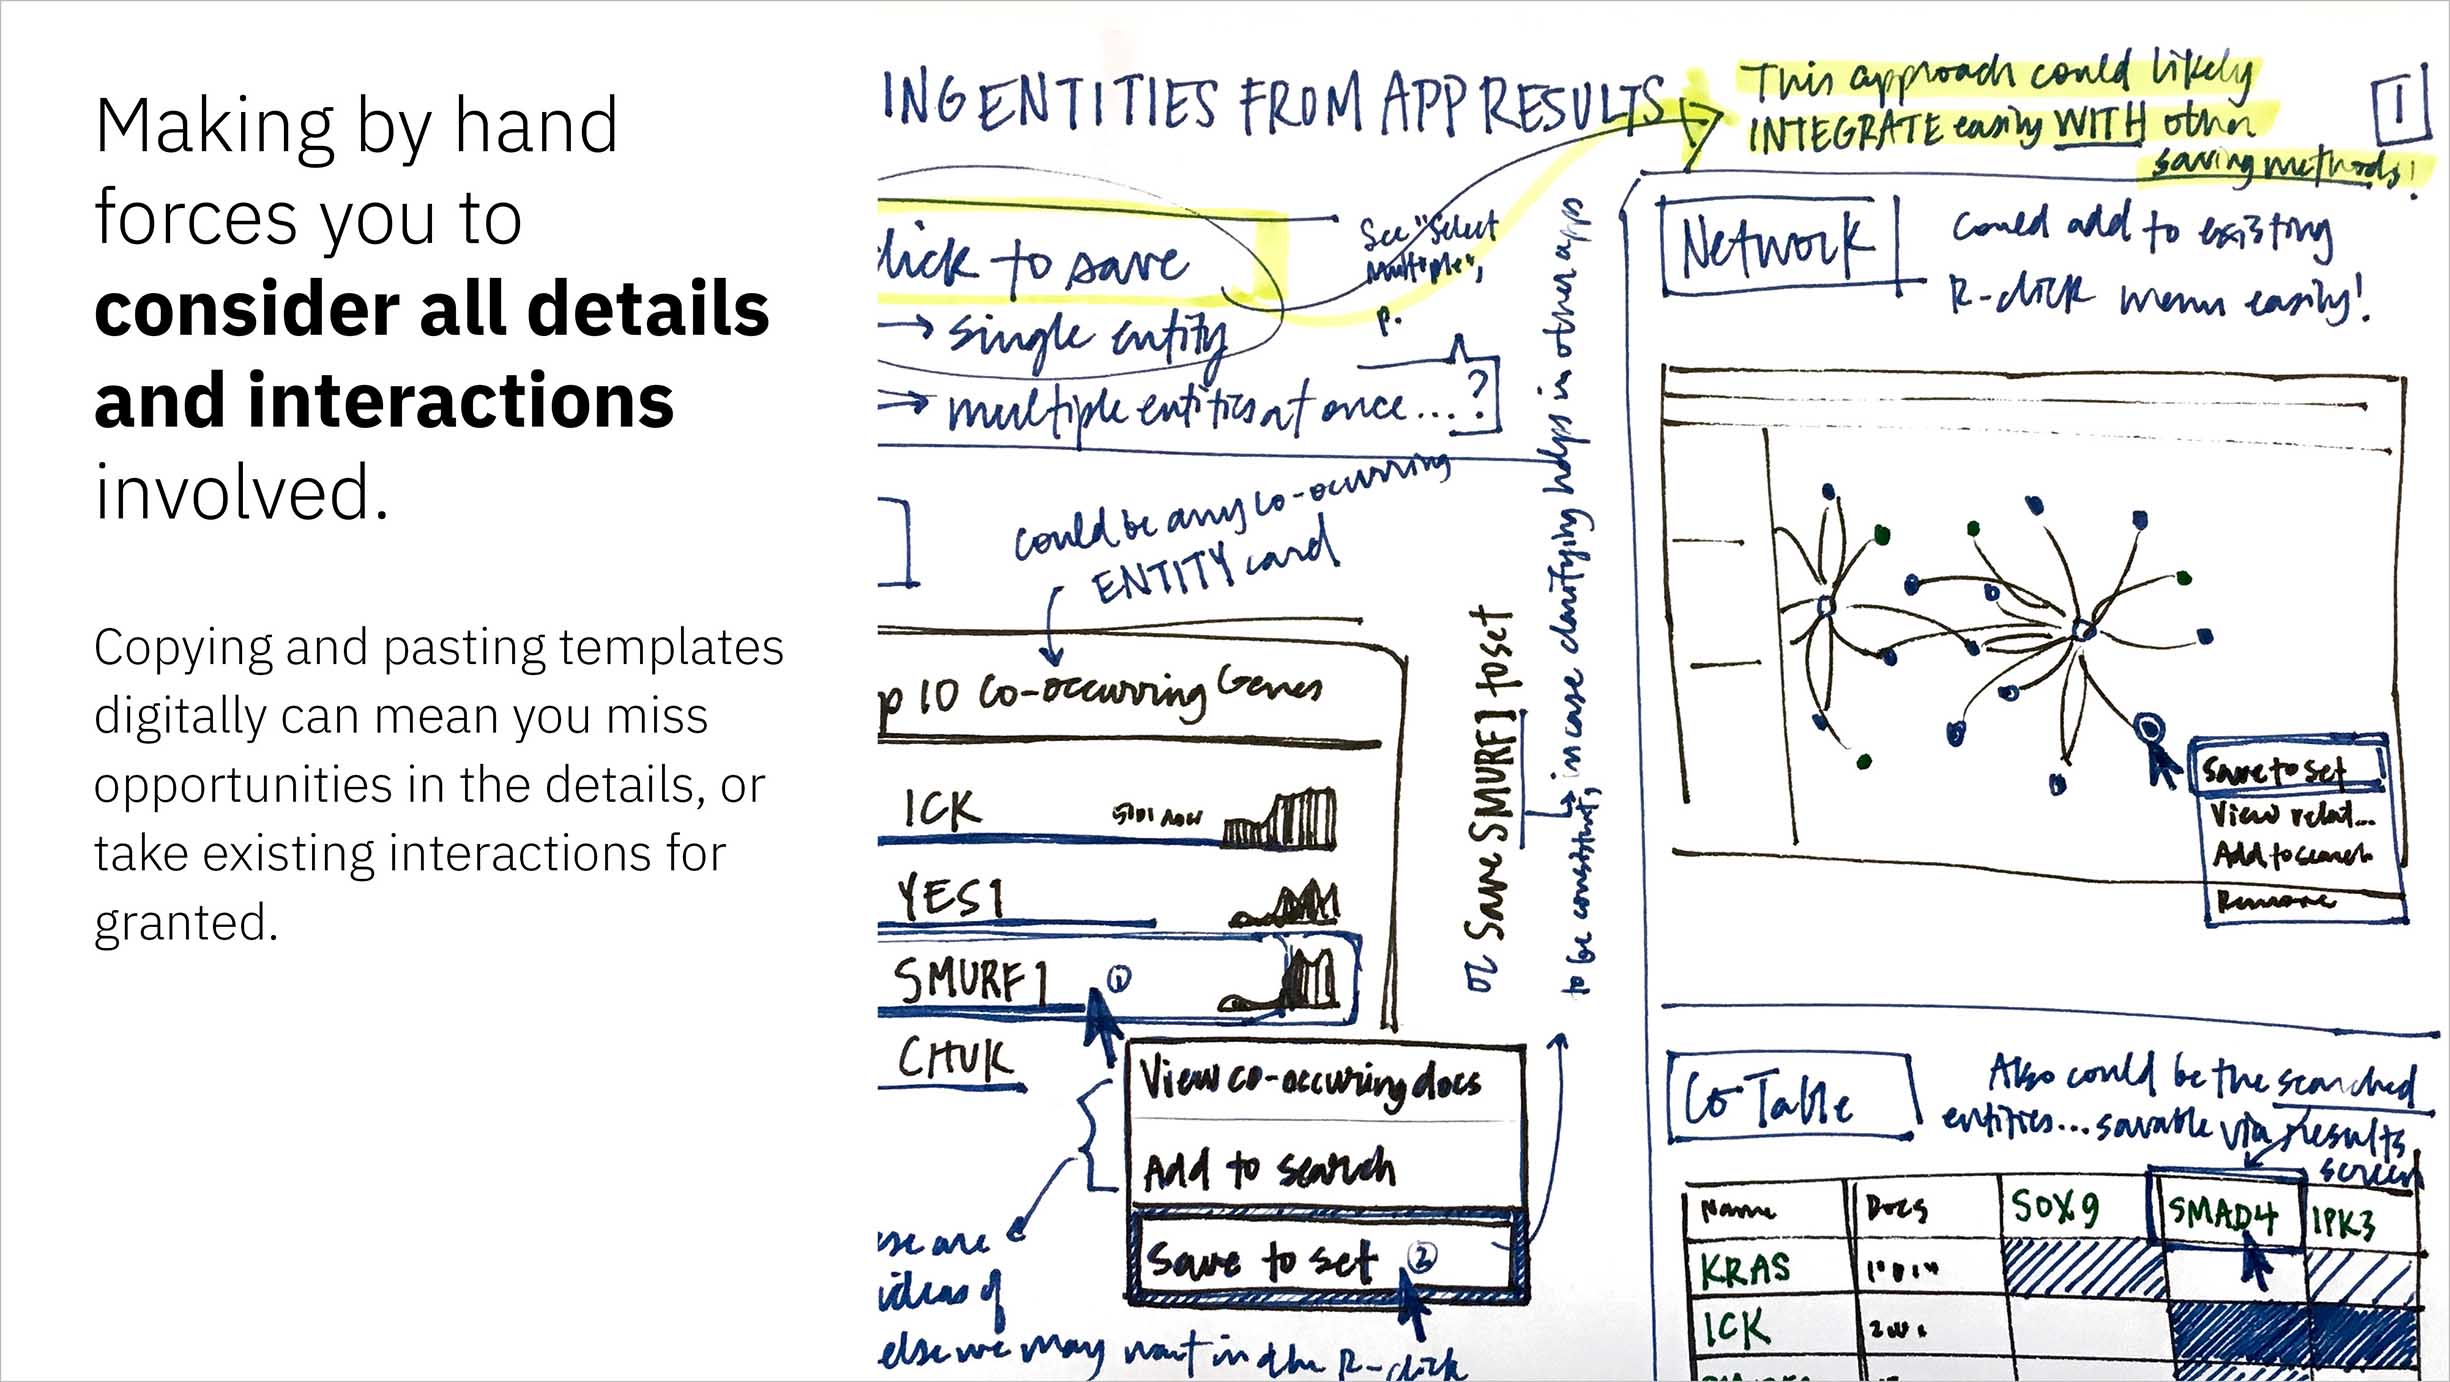 Making by hand
forces you to
consider all details
and interactions
involved.
Copying and pasting templates
digitally can mean you miss
opportunities in the details, or
take existing interactions for
granted.
ING ENTITIES FROM APP RESULTS
This approach could likely
INTEGRATE easily WITH other
saving methods!
1
lick to save
→ single entity
→ multiple entities at once...?
See "Select
Multiple",
p.
could be any co-occurring
ENTITY card
p 10 Co-occurring Genes
ICK
YES1
SMURF1 ①
CHUK
View co-occuring docs
Add to search
Save to set ②
se are
ideas of
else we may want in the R-click
or Save SMURF1 to set
to be consistent, in case clarifying helps in other apps
Network
Could add to existing
R-click menu easily!
Save to set
View relat...
Add to search
Remove
Co Table
Also could be the searched
entities... savable via results
screen
Name Docs SOX9 SMAD4 IPK3
KRAS
ICK